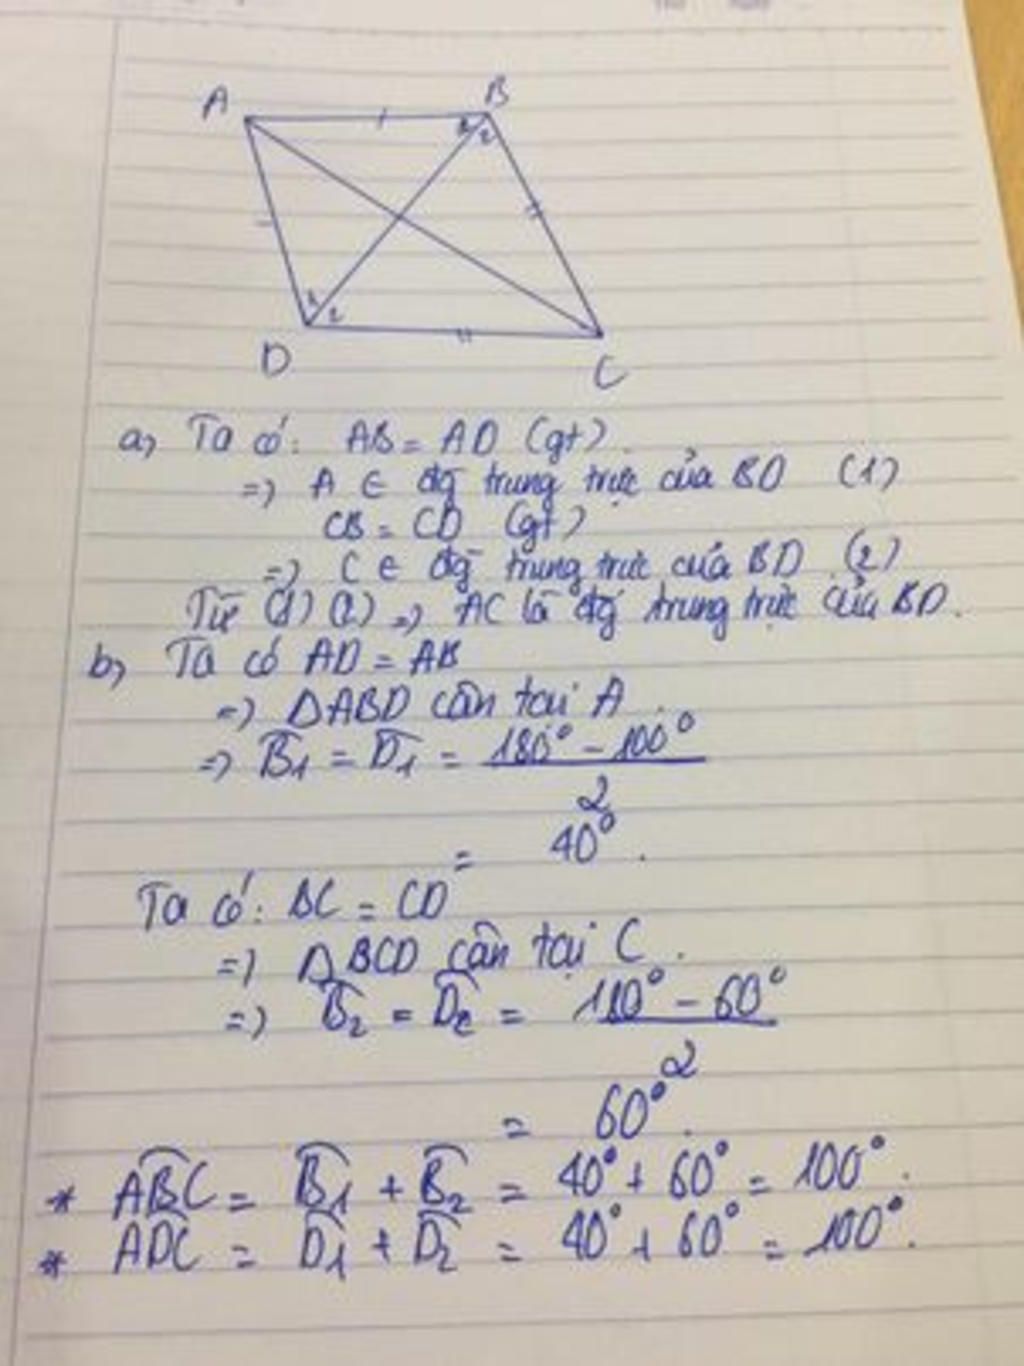 A B
1 2
1 2
D C
a) Ta có: AB = AD (gt).
=> A ∈ đg trung trực của BD (1)
CB = CD (gt)
=> C ∈ đg trung trực của BD (2)
Từ (1) (2) => AC là đg trung trực của BD.
b) Ta có AD = AB
=> ΔABD cân tại A.
=> B̂1 = D̂1 = 180° - 100°
2
= 40°.
Ta có: BC = CD
=> ΔBCD cân tại C.
=> B̂2 = D̂2 = 180° - 60°
2
= 60°.
* ABC = B̂1 + B̂2 = 40° + 60° = 100°.
* ADC = D̂1 + D̂2 = 40° + 60° = 100°.